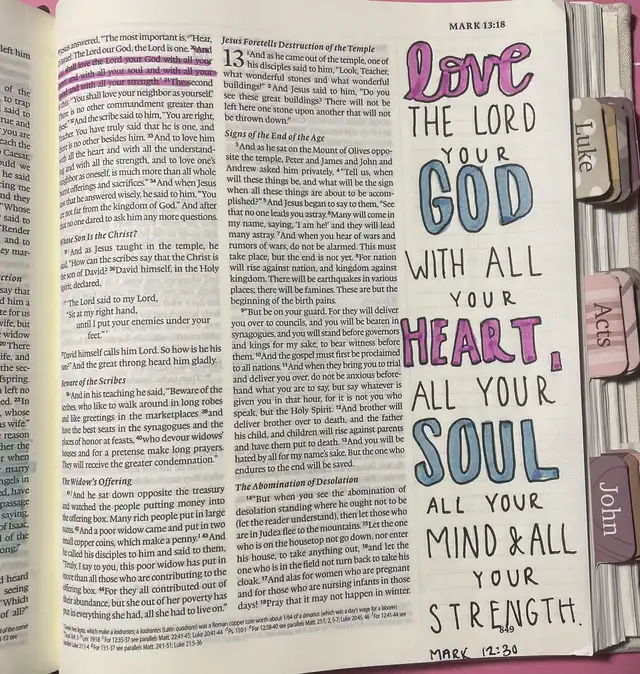 MARK 13:18
left him
of the
to trap
said to
true and
you are
each the
Caesar,
ould we
he said
ring me
nd they
"Whose
said to
"Render
, and to
ey mar-
ction
say that
d him a
te for us
wife, but
e widow
20 There
ife, and
the sec-
fspring.
n left no
ed. 23 In
, whose
s wife."
e reason
her the
r when
marry
ngels in
ed, have
passage
saying,
of Isaac,
d of the
ong."
d heard
seeing
"Which
of all?"
answered, "The most important is, 'Hear,
The Lord our God, the Lord is one. 30 And
shall love the Lord your God with all your
and with all your soul and with all your
and with all your strength.' 31 The second
'You shall love your neighbor as yourself.'
is no other commandment greater than
32 And the scribe said to him, "You are right,
You have truly said that he is one, and
is no other besides him. 33 And to love him
all the heart and with all the understand-
and with all the strength, and to love one's
as oneself, is much more than all whole
offerings and sacrifices." 34 And when Jesus
that he answered wisely, he said to him, "You
not far from the kingdom of God." And after
no one dared to ask him any more questions.
Whose Son Is the Christ?
35 And as Jesus taught in the temple, he
said, "How can the scribes say that the Christ is
the son of David? 36 David himself, in the Holy
Spirit, declared,
"'The Lord said to my Lord,
'Sit at my right hand,
until I put your enemies under your
feet.'"
37 David himself calls him Lord. So how is he his
And the great throng heard him gladly.
Beware of the Scribes
38 And in his teaching he said, "Beware of the
scribes, who like to walk around in long robes
and like greetings in the marketplaces 39 and
have the best seats in the synagogues and the
places of honor at feasts, 40 who devour widows'
houses and for a pretense make long prayers.
They will receive the greater condemnation."
The Widow's Offering
41 And he sat down opposite the treasury
and watched the people putting money into
the offering box. Many rich people put in large
sums. 42 And a poor widow came and put in two
small copper coins, which make a penny. 43 And
he called his disciples to him and said to them,
"Truly, I say to you, this poor widow has put in
more than all those who are contributing to the
offering box. 44 For they all contributed out of
their abundance, but she out of her poverty has
put in everything she had, all she had to live on."
Jesus Foretells Destruction of the Temple
13 1 And as he came out of the temple, one of
his disciples said to him, "Look, Teacher,
what wonderful stones and what wonderful
buildings!" 2 And Jesus said to him, "Do you
see these great buildings? There will not be
left here one stone upon another that will not
be thrown down."
Signs of the End of the Age
3 And as he sat on the Mount of Olives oppo-
site the temple, Peter and James and John and
Andrew asked him privately, 4 "Tell us, when
will these things be, and what will be the sign
when all these things are about to be accom-
plished?" 5 And Jesus began to say to them, "See
that no one leads you astray. 6 Many will come in
my name, saying, 'I am he!' and they will lead
many astray. 7 And when you hear of wars and
rumors of wars, do not be alarmed. This must
take place, but the end is not yet. 8 For nation
will rise against nation, and kingdom against
kingdom. There will be earthquakes in various
places; there will be famines. These are but the
beginning of the birth pains.
9 "But be on your guard. For they will deliver
you over to councils, and you will be beaten in
synagogues, and you will stand before governors
and kings for my sake, to bear witness before
them. 10 And the gospel must first be proclaimed
to all nations. 11 And when they bring you to trial
and deliver you over, do not be anxious before-
hand what you are to say, but say whatever is
given you in that hour, for it is not you who
speak, but the Holy Spirit. 12 And brother will
deliver brother over to death, and the father
his child, and children will rise against parents
and have them put to death. 13 And you will be
hated by all for my name's sake. But the one who
endures to the end will be saved.
The Abomination of Desolation
14 "But when you see the abomination of
desolation standing where he ought not to be
(let the reader understand), then let those who
are in Judea flee to the mountains. 15 Let the one
who is on the housetop not go down, nor enter
his house, to take anything out, 16 and let the
one who is in the field not turn back to take his
cloak. 17 And alas for women who are pregnant
and for those who are nursing infants in those
days! 18 Pray that it may not happen in winter.
love
THE LORD
YOUR
GOD
WITH ALL
YOUR
HEART,
ALL YOUR
SOUL
ALL YOUR
MIND & ALL
YOUR
STRENGTH.
849
MARK 12:30
Luke
Acts
John